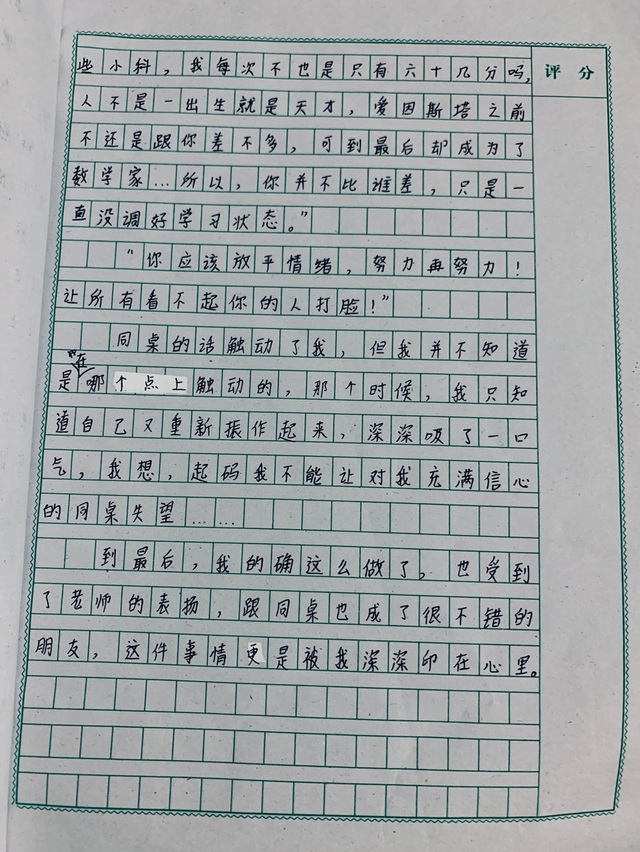 些小科，我每次不也是只有六十几分吗，
评分
人不是一出生就是天才，爱因斯塔之前
不还是跟你差不多，可到最后却成为了
数学家…所以，你并不比谁差，只是一
直没调好学习状态。”
“你应该放平情绪，努力再努力！
让所有看不起你的人打脸！”
同桌的话触动了我，但我并不知道
是在哪个点上触动的，那个时候，我只知
道自己又重新振作起来，深深吸了一口
气，我想，起码我不能让对我充满信心
的同桌失望……
到最后，我的确这么做了。也受到
了老师的表扬，跟同桌也成了很不错的
朋友，这件事情更是被我深深印在心里。